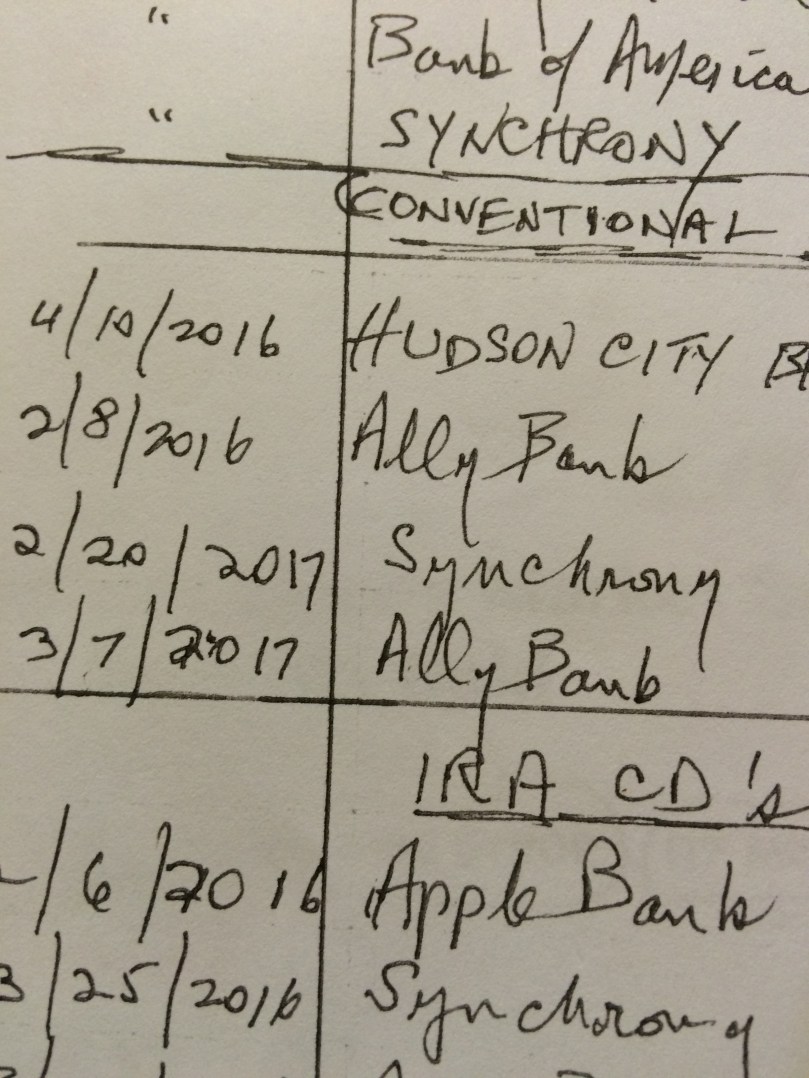 " Bank of America
" SYNCHRONY
CONVENTIONAL
4/10/2016 HUDSON CITY
2/8/2016 Ally Bank
2/20/2017 Synchrony
3/7/2017 Ally Bank
IRA CD's
/6/2016 Apple Bank
3/25/2016 Synchrony